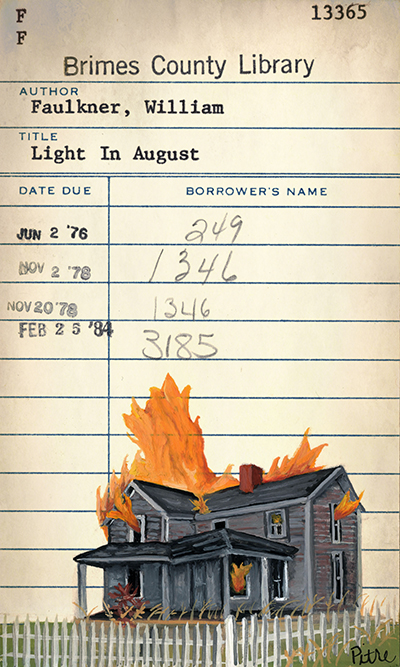 F 13365
F
Brimes County Library
AUTHOR
Faulkner, William
TITLE
Light In August
DATE DUE BORROWER'S NAME
JUN 2 '76 249
NOV 2 '78 1346
NOV 20 '78 1346
FEB 25 '84 3185
Petre